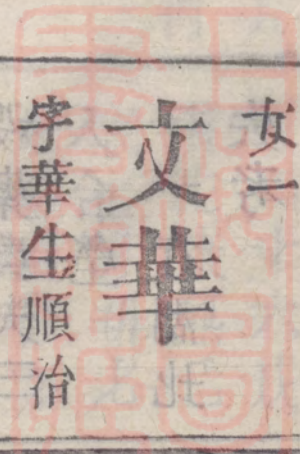 女一
文華
字華生順治